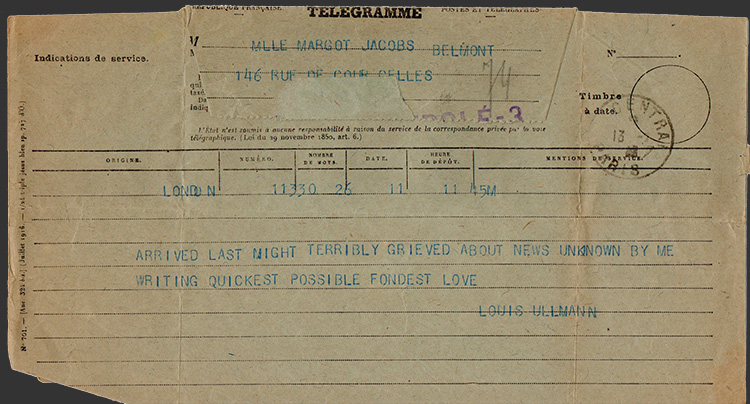 RÉPUBLIQUE FRANÇAISE TÉLÉGRAMME POSTES ET TÉLÉGRAPHES
Indications de service.
MLLE MARGOT JACOBS BELMONT
146 RUE DE COURCELLES
74
Nº
Timbre
à date.
OLÉ-3
CENTRAL
13
PARIS
L'État n'est soumis à aucune responsabilité à raison du service de la correspondance privée par la voie
télégraphique. (Loi du 29 novembre 1850, art. 6.)
ORIGINE. NUMÉRO. NOMBRE DE MOTS. DATE. HEURE DE DÉPÔT. MENTIONS DE SERVICE.
LONDON 11330 26 11 11 45M
ARRIVED LAST NIGHT TERRIBLY GRIEVED ABOUT NEWS UNKNOWN BY ME
WRITING QUICKEST POSSIBLE FONDEST LOVE
LOUIS ULLMANN
Nº 701.